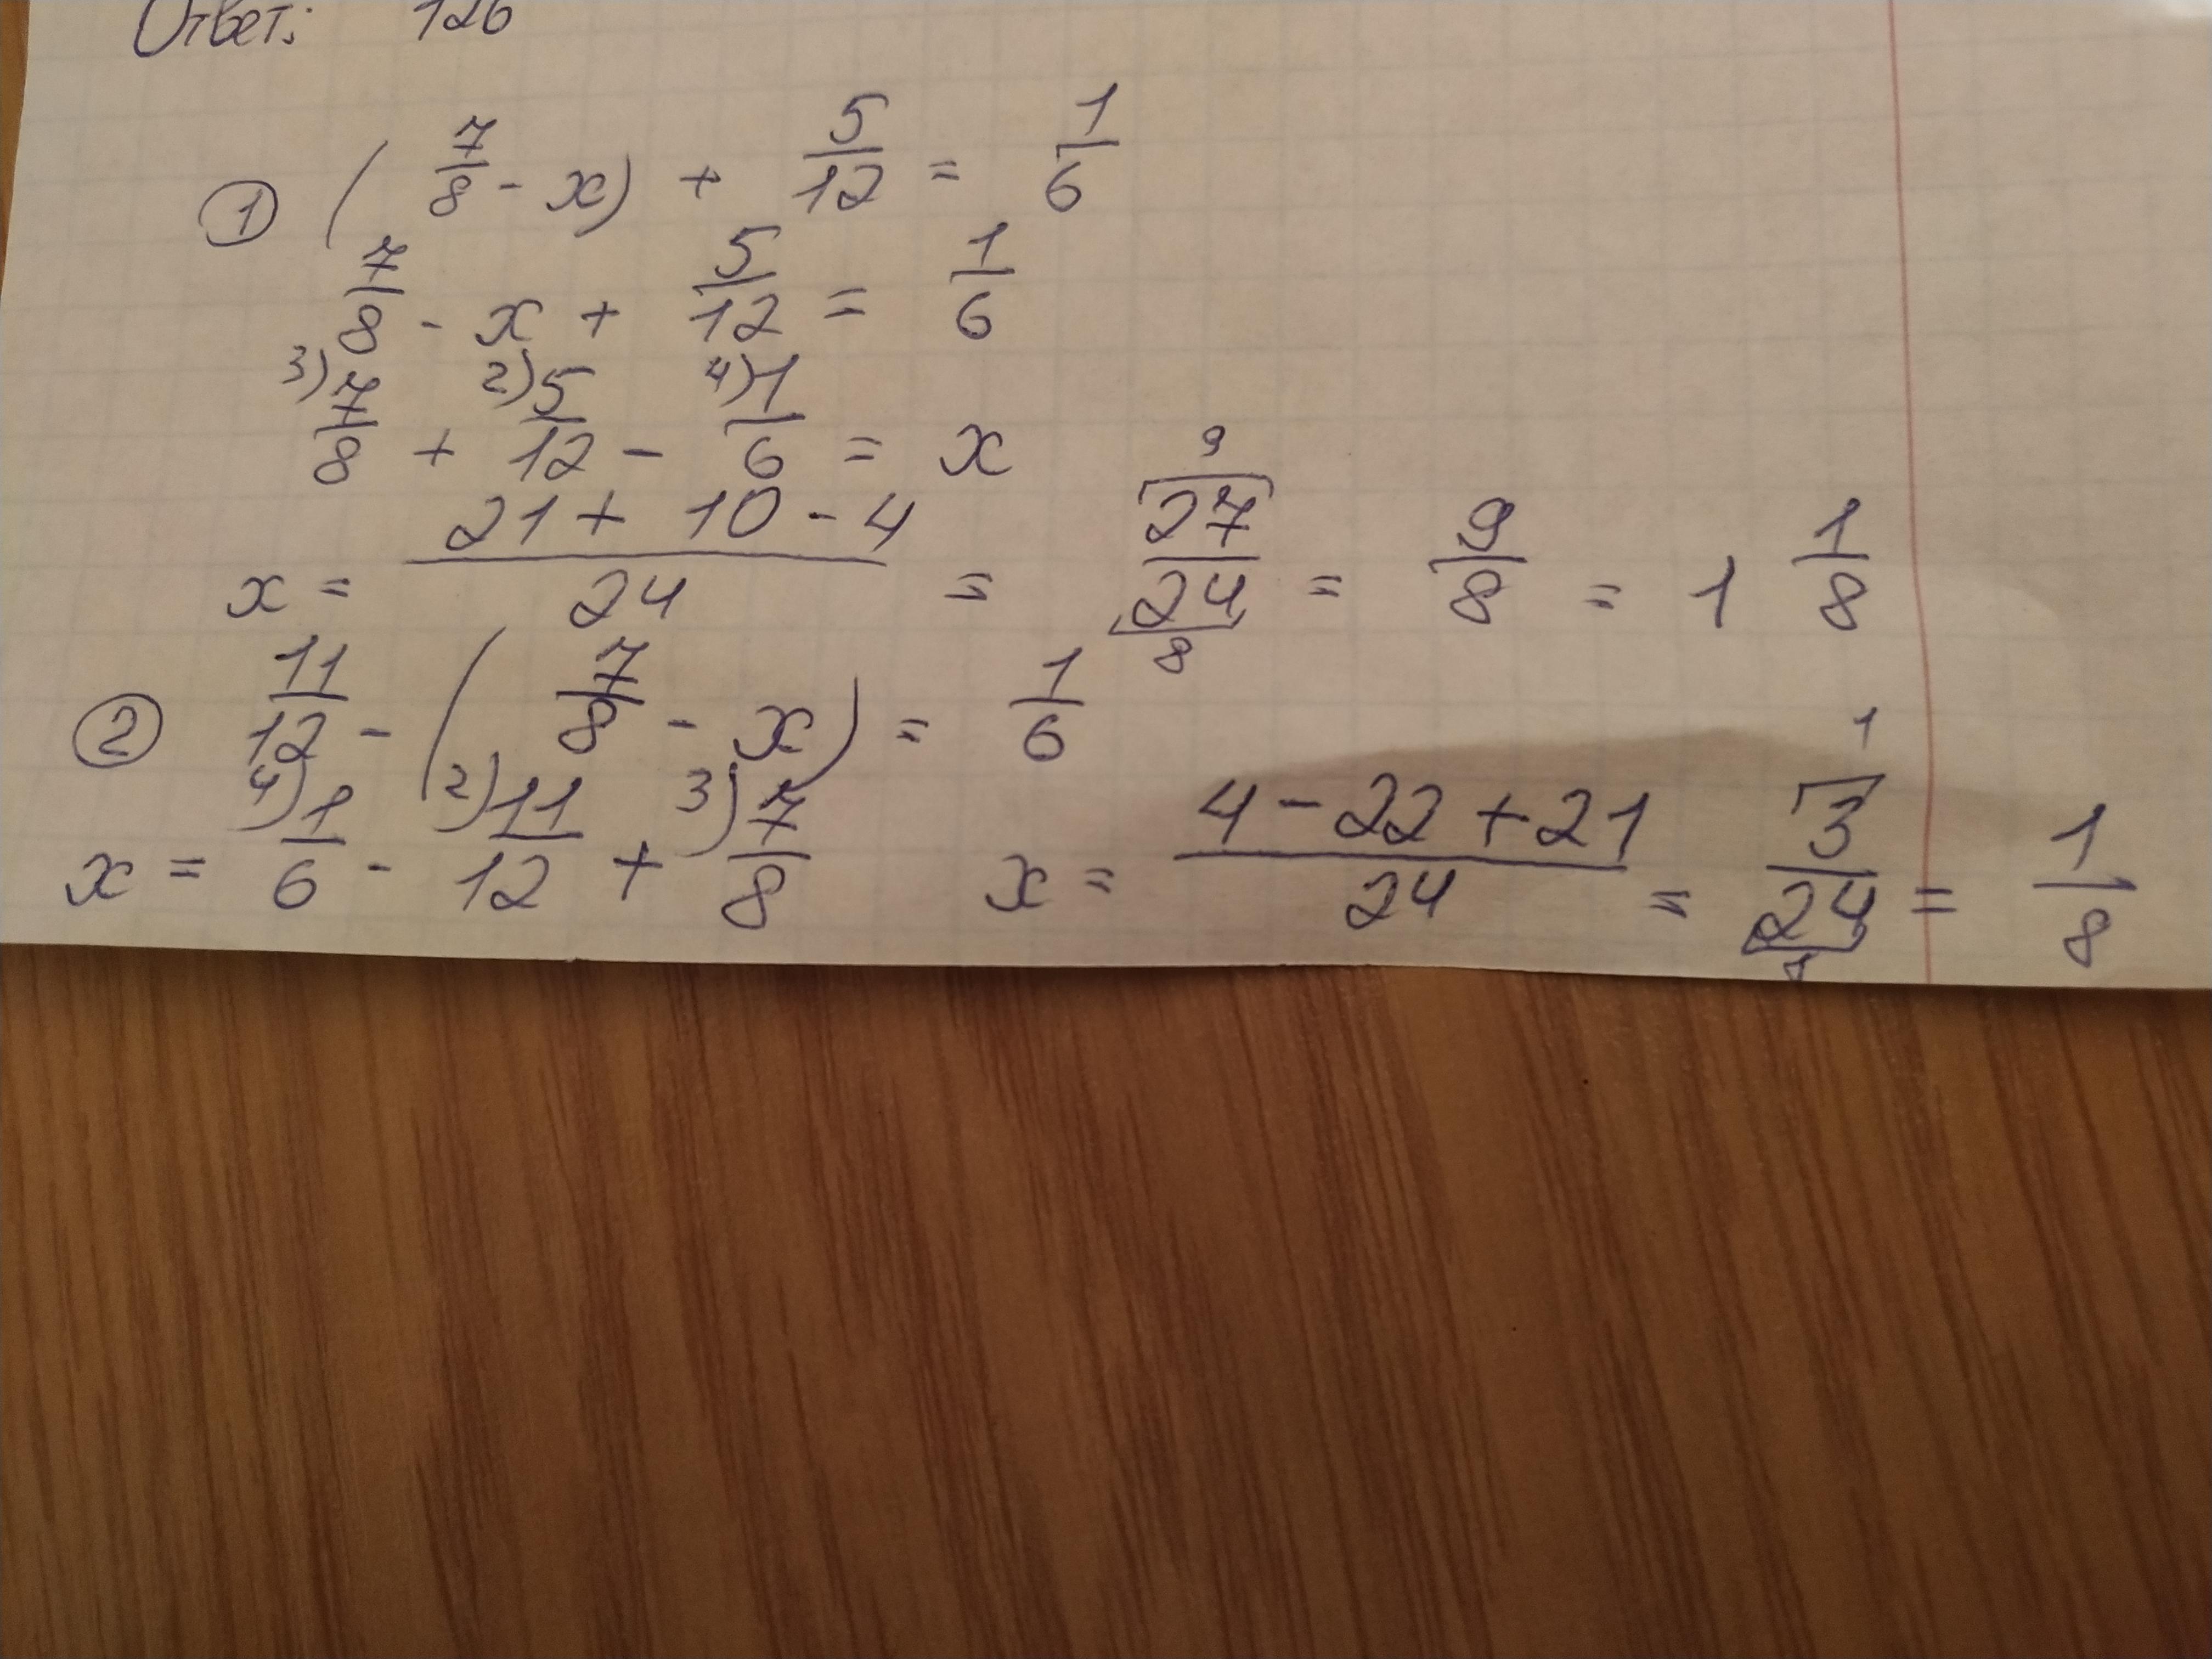 Ответ: 126
① (7/8 - x) + 5/12 = 1/6
7/8 - x + 5/12 = 1/6
3) 7/8 + 2) 5/12 - 4) 1/6 = x
x = (21 + 10 - 4)/24 = 27/24 9 8 = 9/8 = 1 1/8
② 11/12 - (7/8 - x) = 1/6
x = 4) 1/6 - 2) 11/12 + 3) 7/8 x = (4 - 22 + 21)/24 = 3/24 1 = 1/8